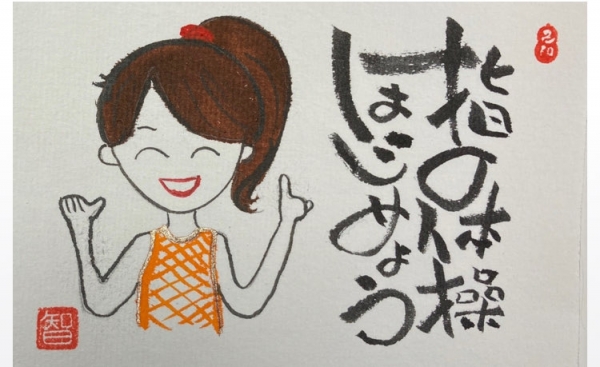 指の体操
はじめよう
智